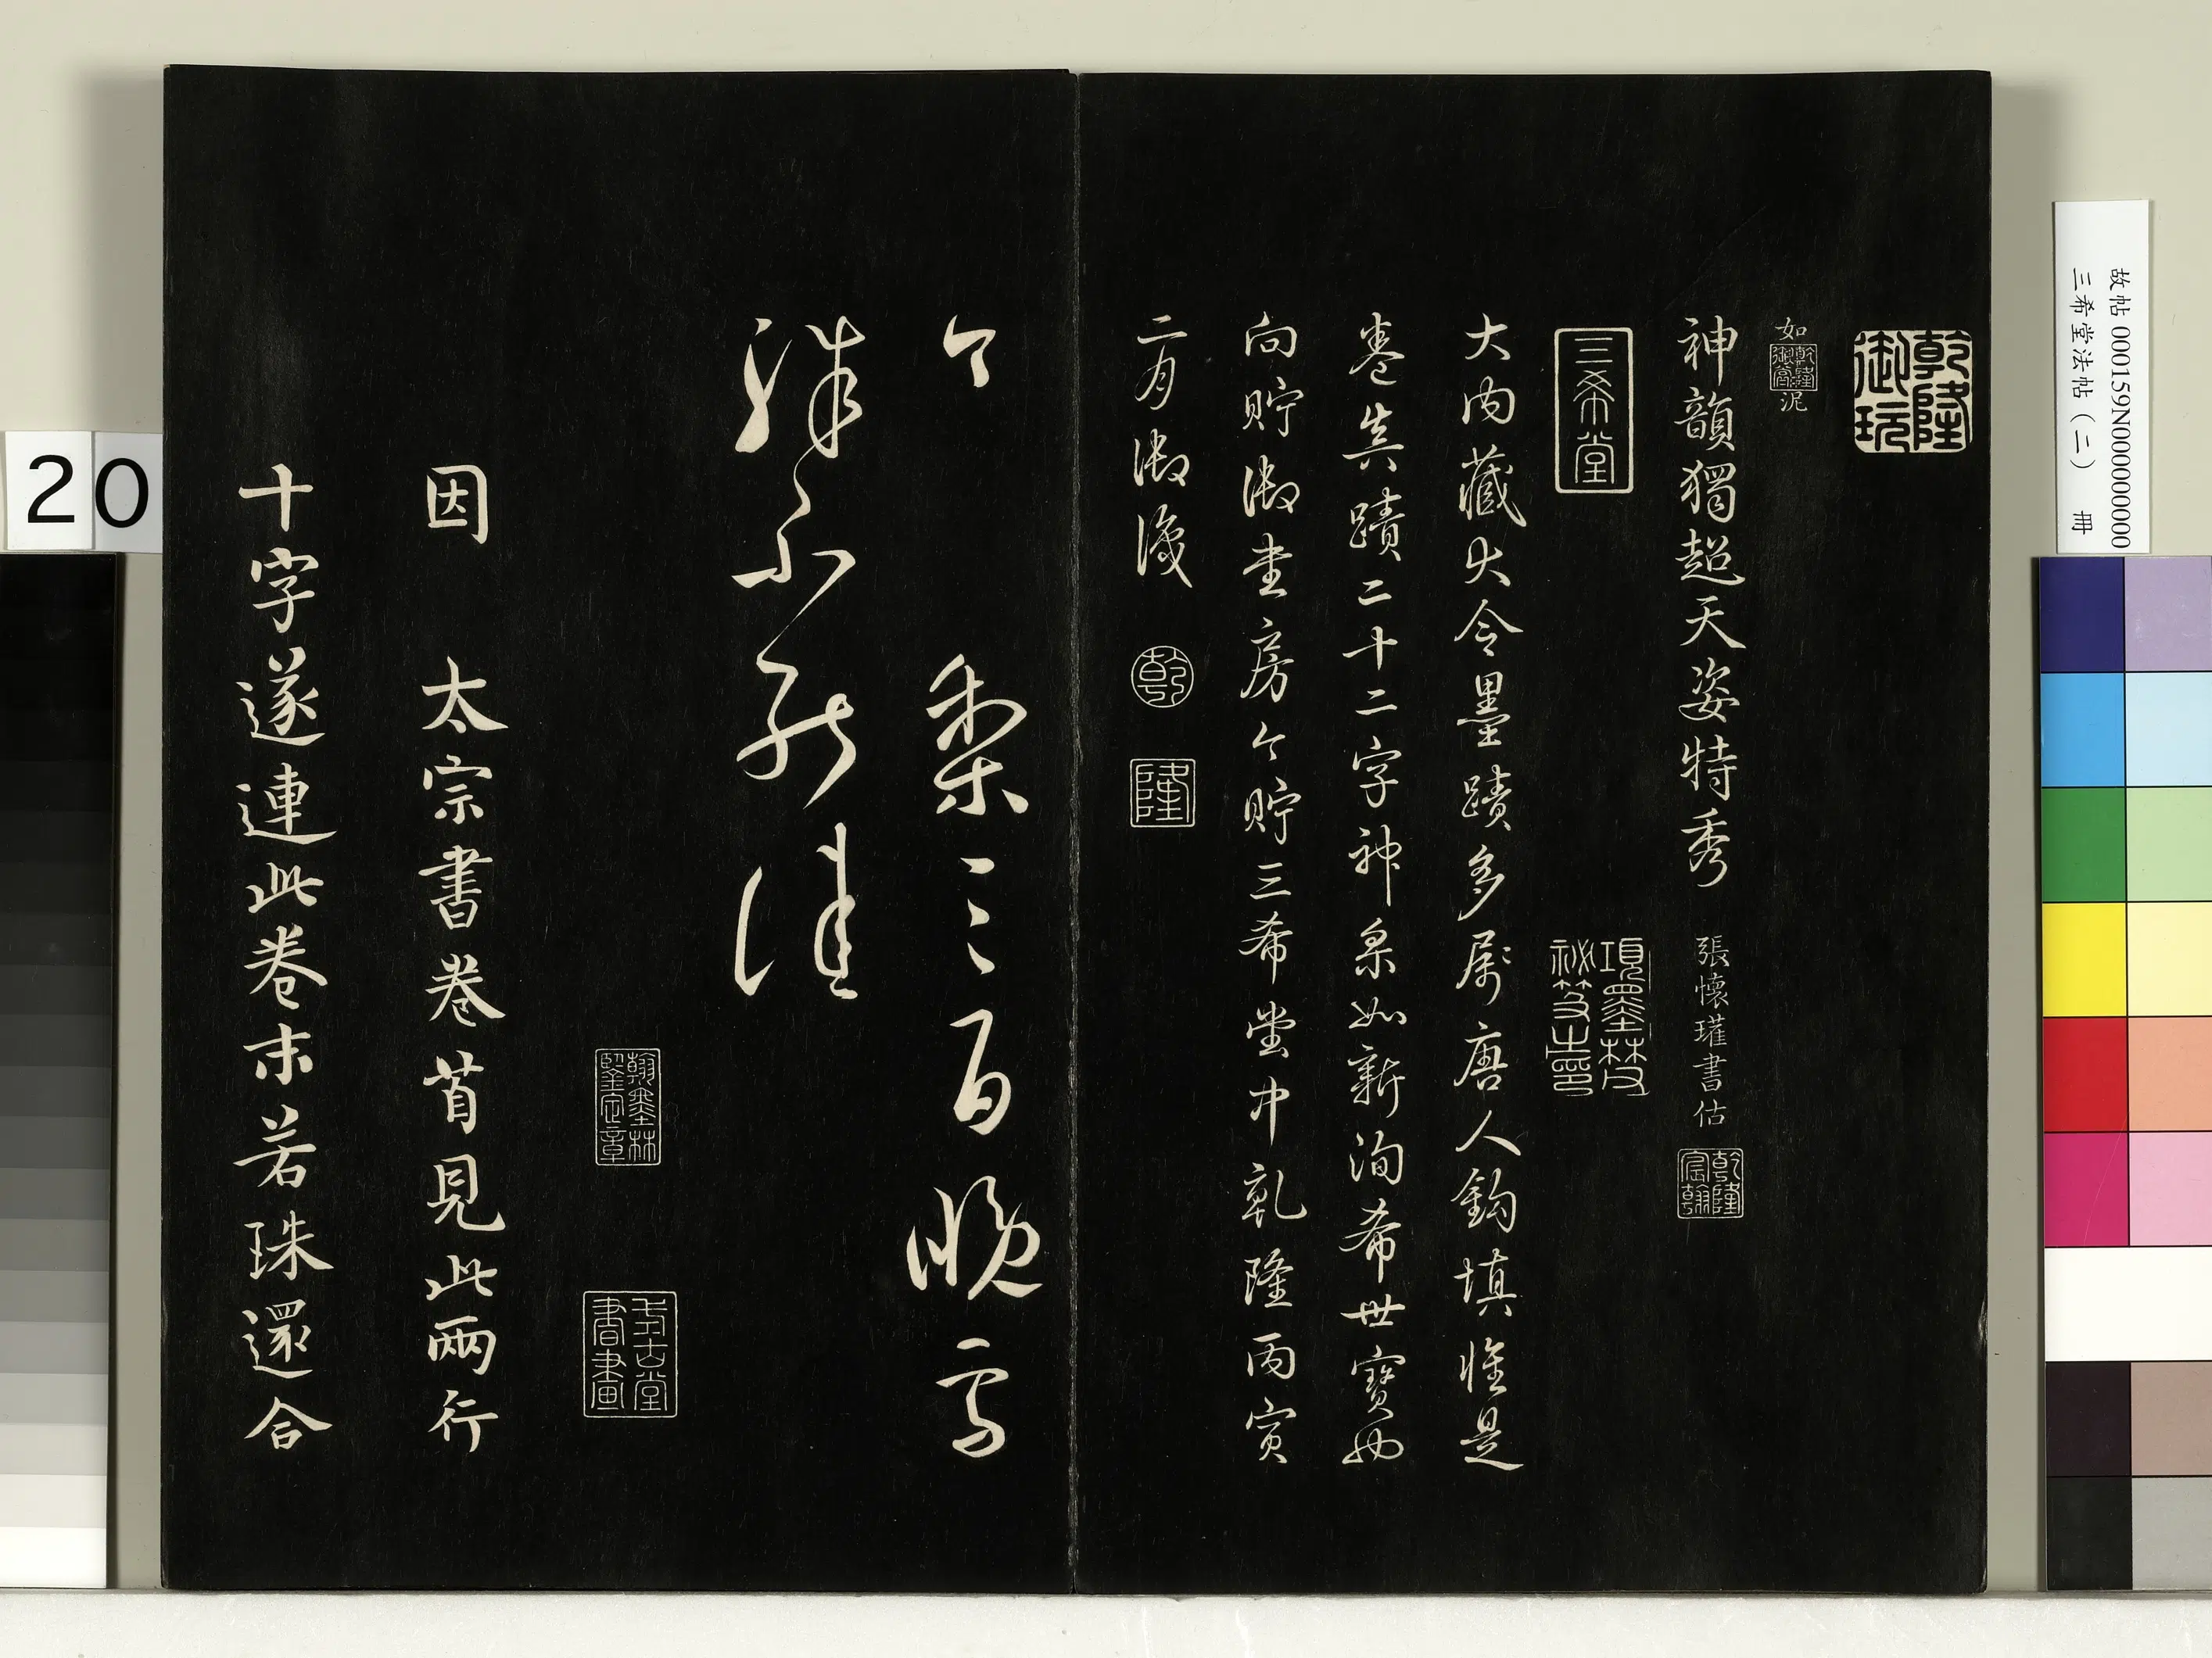 乾隆御玩
如泥
乾隆御賞
神韻獨超天姿特秀 張懷瓘書估
乾隆宸翰
三希堂
項墨林祕笈之印
大內藏大令墨蹟多屬唐人鈎填惟是
卷真蹟二十二字神采如新洵希世寶也
向貯御書房今貯三希堂中乾隆丙寅
二月御識
乾
隆
今
梨三百晚雪
殊不能佳
翰墨林鑒定章
書畫
因 太宗書卷首見此兩行
十字遂連此卷末若珠還合
故帖 000159N000000000
三希堂法帖(二) 冊
20